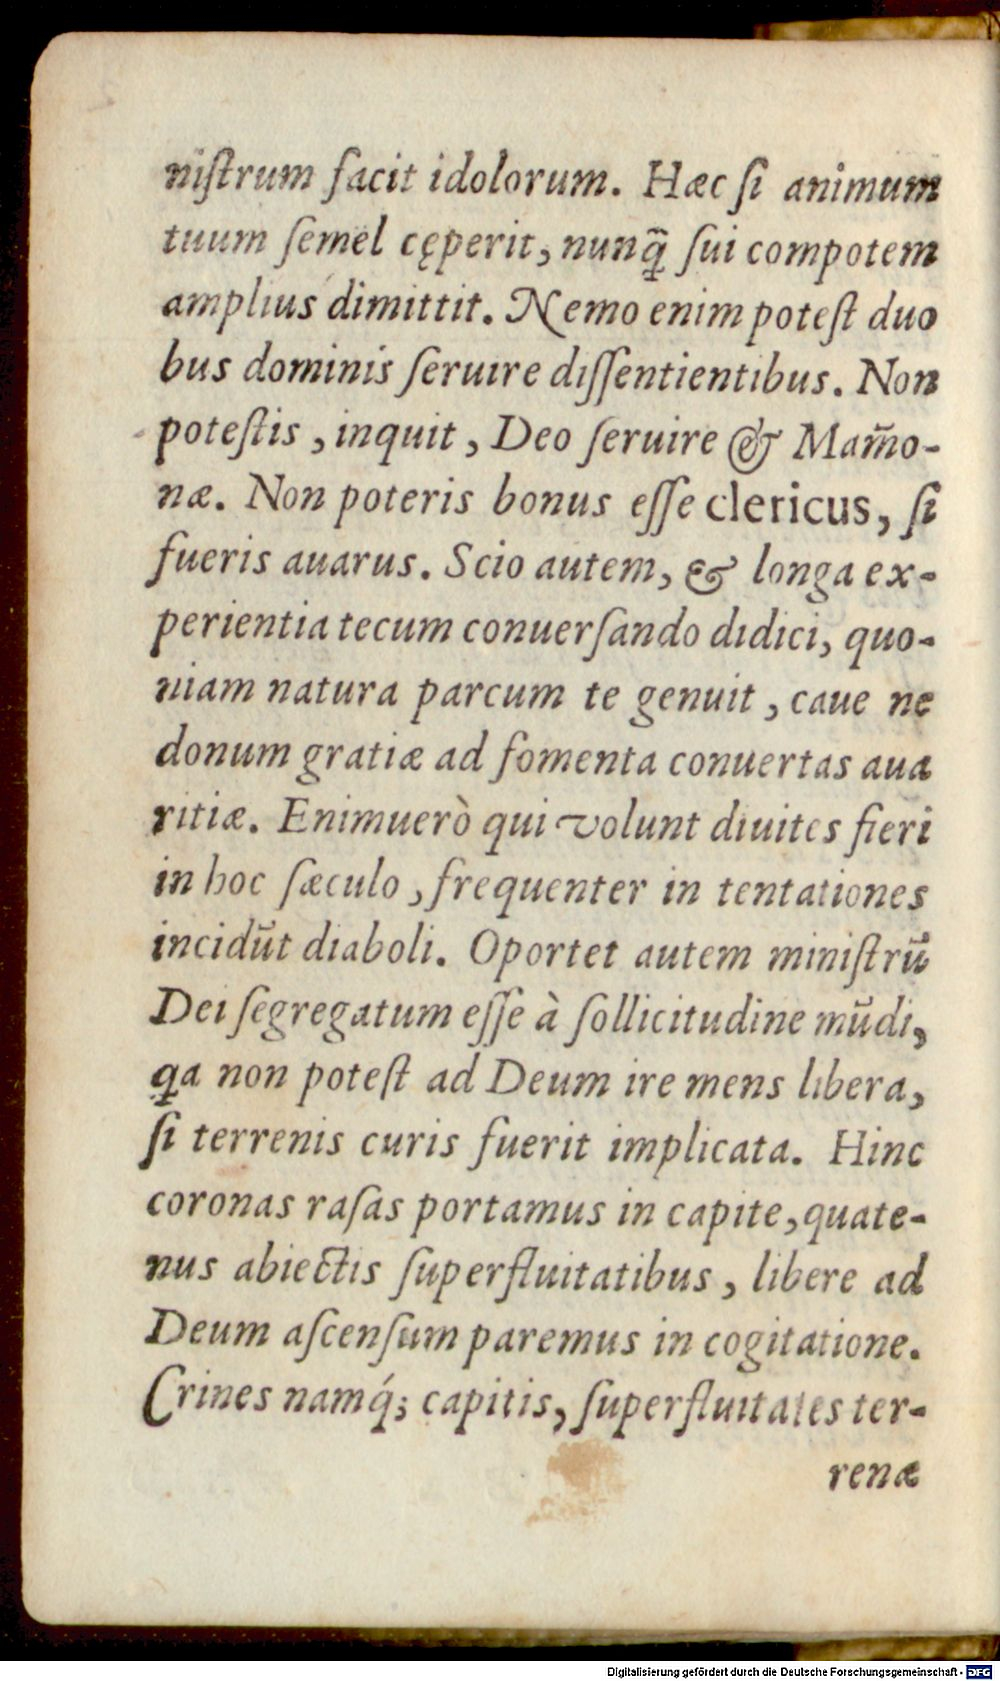 niſtrum facit idolorum. Hæc ſi animum
tuum ſemel cęperit, nunq̃ ſui compotem
amplius dimittit. Nemo enim poteſt duo
bus dominis ſeruire diſſentientibus. Non
poteſtis, inquit, Deo ſeruire & Mam̃o-
næ. Non poteris bonus eſſe clericus, ſi
fueris auarus. Scio autem, & longa ex-
perientia tecum conuerſando didici, quo-
niam natura parcum te genuit, caue ne
donum gratiæ ad fomenta conuertas aua
ritiæ. Enimuerò qui volunt diuites fieri
in hoc ſæculo, frequenter in tentationes
incidũt diaboli. Oportet autem miniſtrũ
Dei ſegregatum eſſe à ſollicitudine mũdi,
q̣a non poteſt ad Deum ire mens libera,
ſi terrenis curis fuerit implicata. Hinc
coronas raſas portamus in capite, quate-
nus abiectis ſuperfluitatibus, libere ad
Deum aſcenſum paremus in cogitatione.
Crines namq́; capitis, ſuperfluitates ter-
renæ
Digitalisierung gefördert durch die Deutsche Forschungsgemeinschaft - DFG